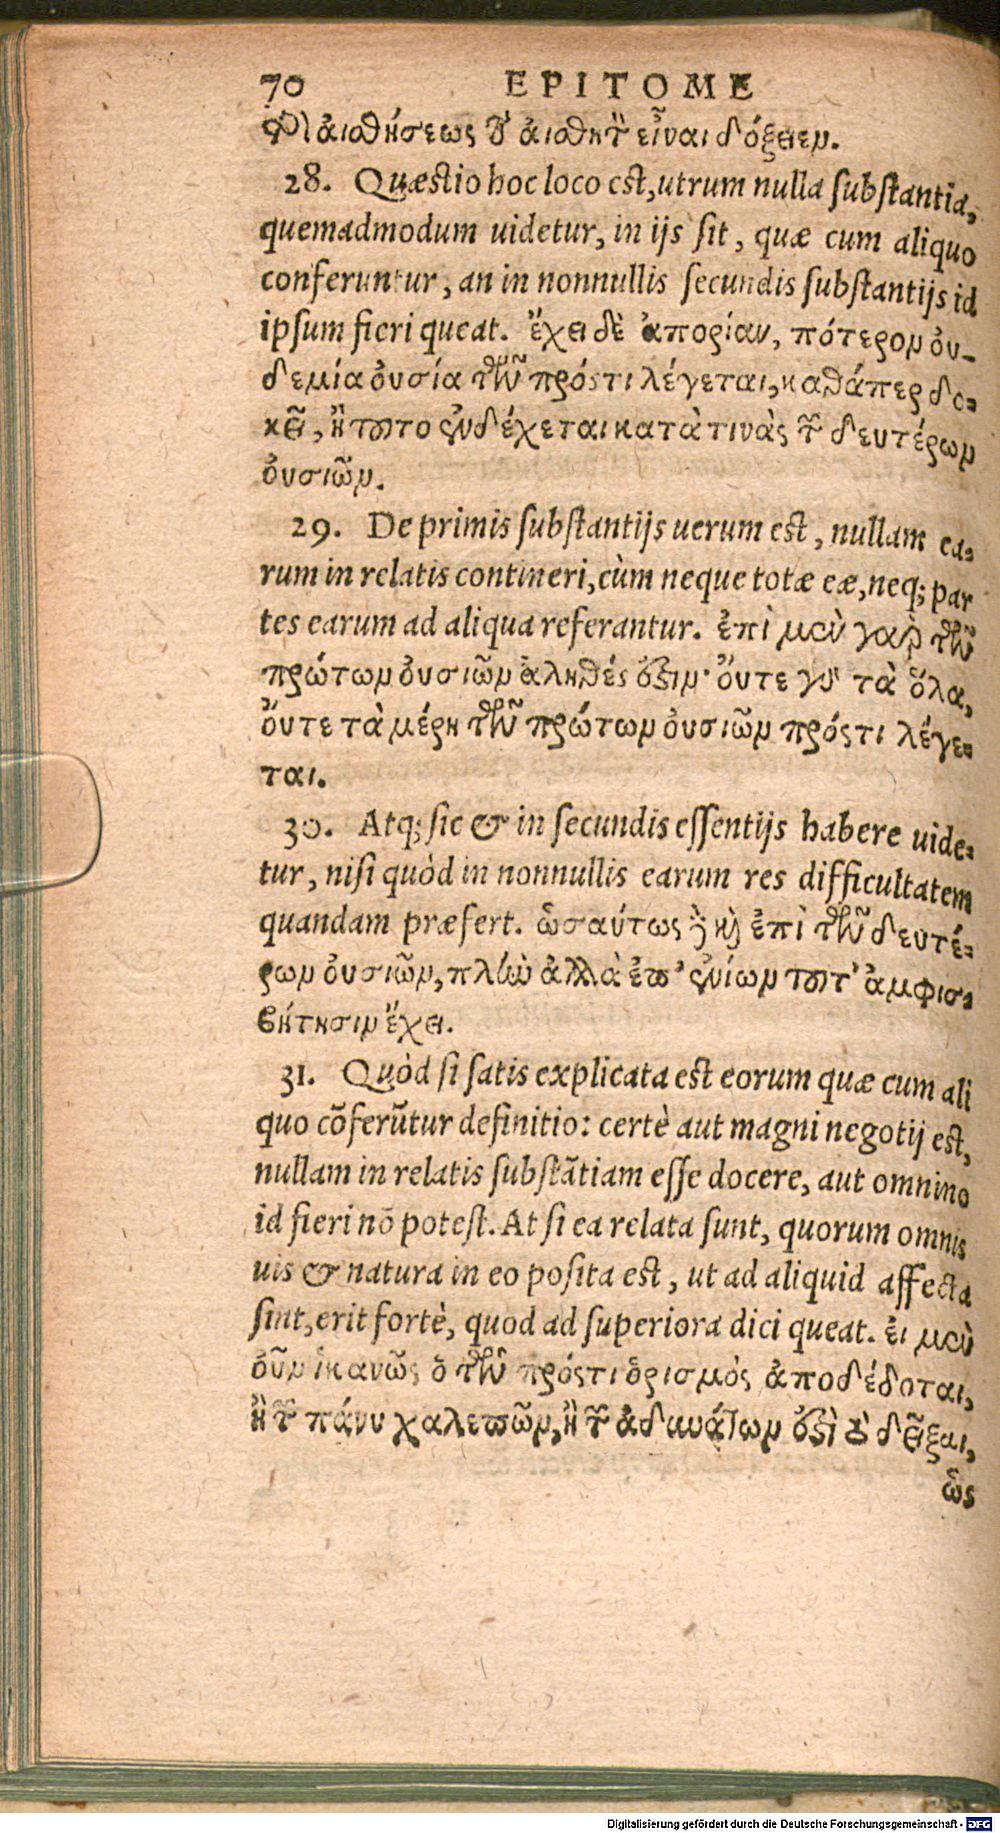 70 EPITOME
αἰσθήσεως τὸ αἰσθητὸν εἶναι δόξειεν.
28. Quæstio hoc loco est, utrum nulla substantia,
quemadmodum uidetur, in ijs sit, quæ cum aliquo
conferuntur, an in nonnullis secundis substantijs id
ipsum fieri queat. ἔχει δὲ ἀπορίαν, πότερον οὐ-
δεμία οὐσία τῶν πρόστι λέγεται, καθάπερ δο-
κεῖ, ἢ τοῦτο ἐνδέχεται κατὰ τινὰς τῶν δευτέρων
οὐσιῶν.
29. De primis substantijs uerum est, nullam ea-
rum in relatis contineri, cùm neque totæ eæ, neq; par
tes earum ad aliqua referantur. ἐπὶ μὲν γὰρ τῶν
πρώτων οὐσιῶν ἀληθές ἐστιν· οὔτε γὰρ τὰ ὅλα,
οὔτε τὰ μέρη τῶν πρώτων οὐσιῶν πρόστι λέγε-
ται.
30. Atq; sic & in secundis essentijs habere uide-
tur, nisi quòd in nonnullis earum res difficultatem
quandam præfert. ὡσαύτως δὲ καὶ ἐπὶ τῶν δευτέ-
ρων οὐσιῶν, πλὴν ἀλλὰ ἐπ’ ἐνίων τοῦτ’ ἀμφισ-
βήτησιν ἔχει.
31. Quòd si satis explicata est eorum quæ cum ali
quo cōferūtur definitio: certè aut magni negotij est,
nullam in relatis substātiam esse docere, aut omnino
id fieri nō potest. At si ea relata sunt, quorum omnis
uis & natura in eo posita est, ut ad aliquid affecta
sint, erit fortè, quod ad superiora dici queat. εἰ μὲν
οὖν ἱκανῶς ὁ τῶν πρόστι ὁρισμὸς ἀποδέδοται,
ἢ τῶν πάνυ χαλεπῶν, ἢ τῶν ἀδυνάτων ἐστὶ τὸ δεῖξαι,
ὡς
Digitalisierung gefördert durch die Deutsche Forschungsgemeinschaft - DFG